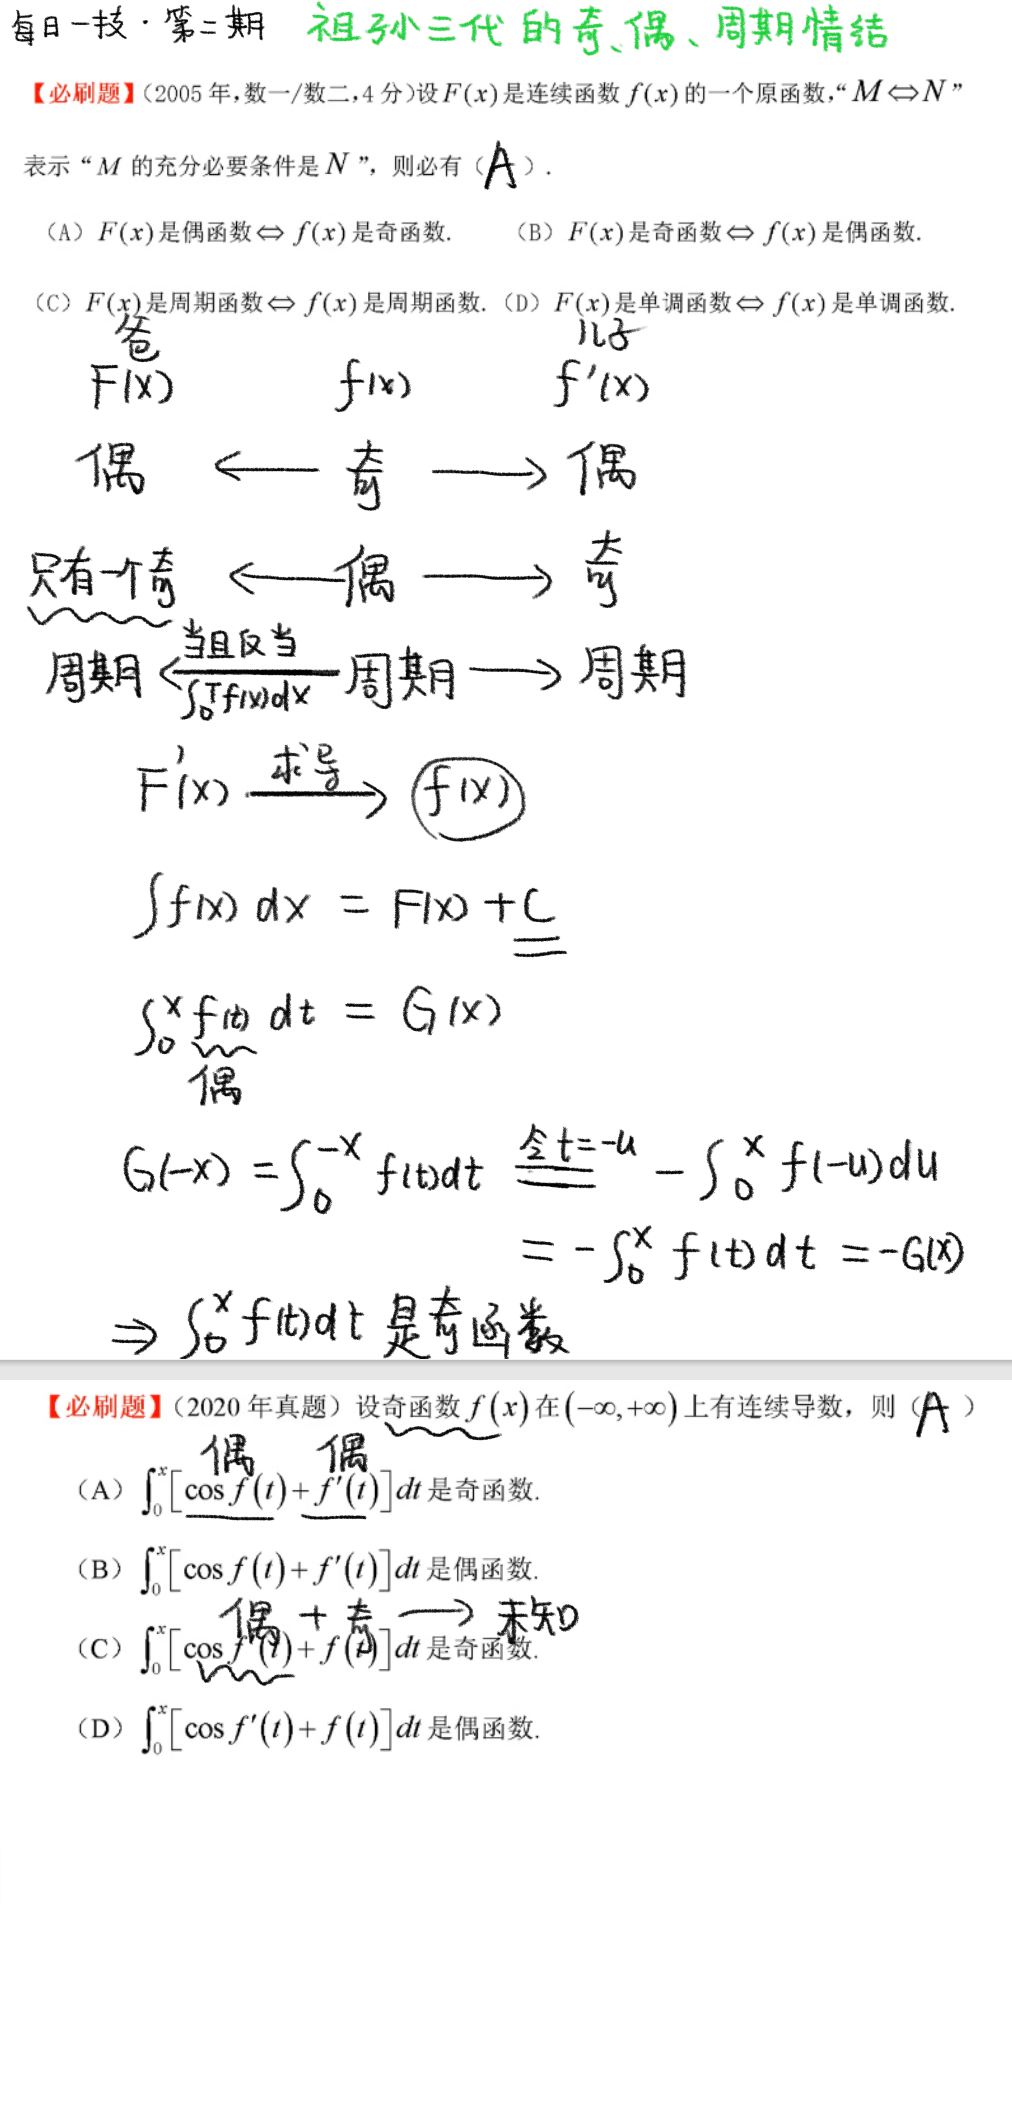 每日一技·第二期 祖孙三代的奇、偶、周期情结
【必刷题】(2005年,数一/数二,4分)设F(x)是连续函数f(x)的一个原函数,“M⇔N”
表示“M的充分必要条件是N”,则必有(A).
(A) F(x)是偶函数⇔f(x)是奇函数. (B) F(x)是奇函数⇔f(x)是偶函数.
(C) F(x)是周期函数⇔f(x)是周期函数. (D) F(x)是单调函数⇔f(x)是单调函数.
爸 儿子
F(x) f(x) f'(x)
偶 ← 奇 → 偶
只有一个奇 ← 偶 → 奇
当且仅当
周期 ← 周期 → 周期
∫₀ᵀf(x)dx
F'(x) 求导→ f(x)
∫f(x)dx = F(x)+C
∫₀ˣ f(t) dt = G(x)
偶
G(-x) = ∫₀⁻ˣ f(t)dt 令t=-u -∫₀ˣ f(-u)du
= -∫₀ˣ f(t)dt = -G(x)
⇒ ∫₀ˣ f(t)dt 是奇函数
【必刷题】(2020年真题)设奇函数f(x)在(-∞,+∞)上有连续导数,则(A)
偶 偶
(A) ∫₀ˣ[cos f(t)+f'(t)]dt是奇函数.
(B) ∫₀ˣ[cos f(t)+f'(t)]dt是偶函数.
偶 + 奇 → 未知
(C) ∫₀ˣ[cos f'(t)+f(t)]dt是奇函数.
(D) ∫₀ˣ[cos f'(t)+f(t)]dt是偶函数.